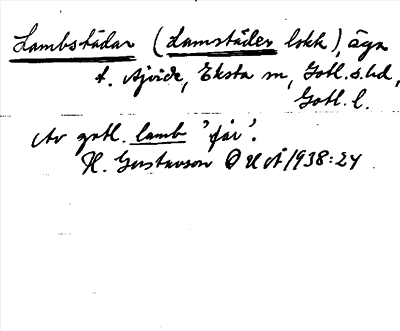 Lambstädar (Lamstäder lokk), äga
t. Ajvide, Eksta sn, Gotl. s. hd,
Gotl. l.
Av gotl. lamb 'får'.
H. Gustavson OUÅ 1938:24